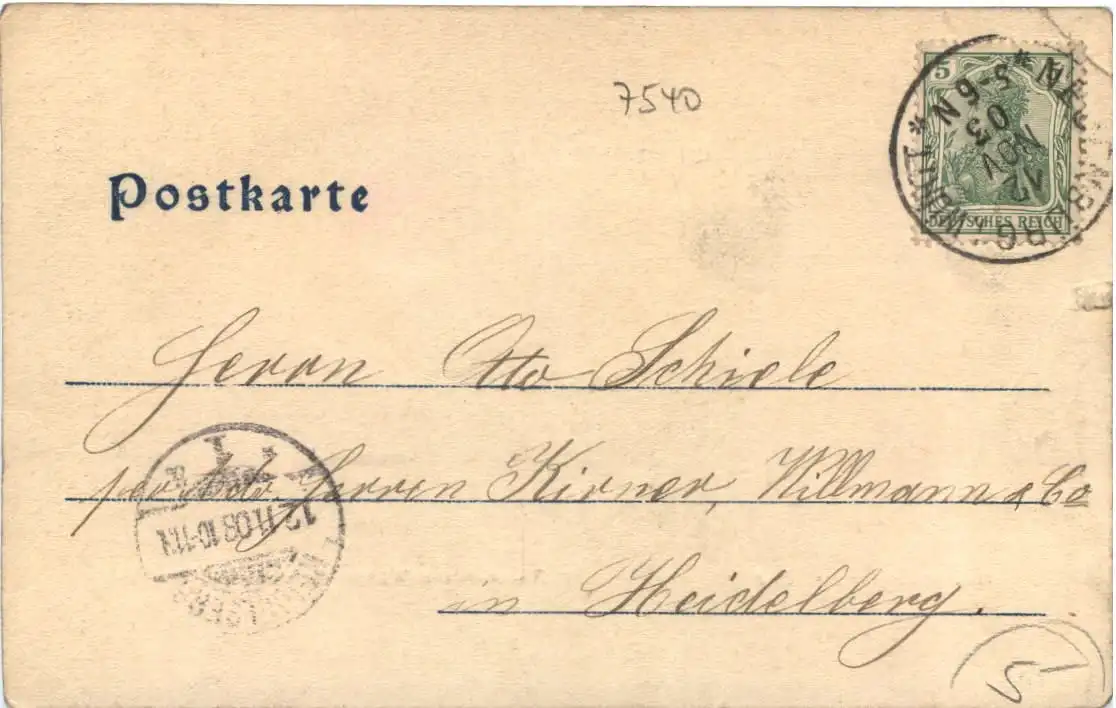 7540
5
DEUTSCHES REICH
NEUENBÜRG * WÜRTT *
12
NOV
03
5-6 N
Postkarte
Herrn Otto Schiele
per Adr. Herren Kirner, Willmann & Co
in Heidelberg.
12.11.03.10-11N
5